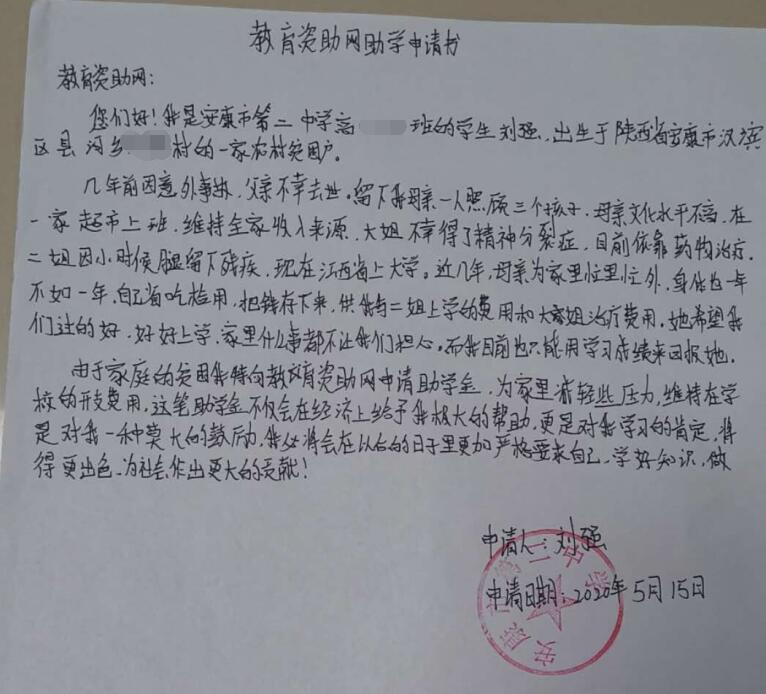 教育资助网助学申请书
教育资助网:
您们好!我是安康市第二中学高 班的学生刘强.出生于陕西省安康市汉滨
区县河乡 村的一家农村贫困户。
几年前因意外事故,父亲不幸去世。留下我母亲一人照顾三个孩子.母亲文化水平不高.在
一家超市上班.维持全家收入来源.大姐不幸得了精神分裂症.目前依靠药物治疗.
二姐因小时候腿留下残疾.现在江西省上大学。近几年,母亲为家里忙里忙外,身体也一年
不如一年,自己省吃俭用,把钱存下来,供我与二姐上学的费用和大姐治疗费用,她希望我
们过的好.好好上学,家里什么事都不让我们担心。而我目前也只能用学习成绩来回报她.
由于家庭的贫困我特向教育资助网申请助学金.为家里减轻些压力,维持在学
校的开支费用,这笔助学金不仅会在经济上给予我极大的帮助.更是对我学习的肯定,
是对我一种莫大的鼓励.我必将会在以后的日子里更加严格要求自己.学好知识.做
得更出色.为社会作出更大的贡献!
申请人:刘强
申请日期:2020年5月15日
安康市第二中学